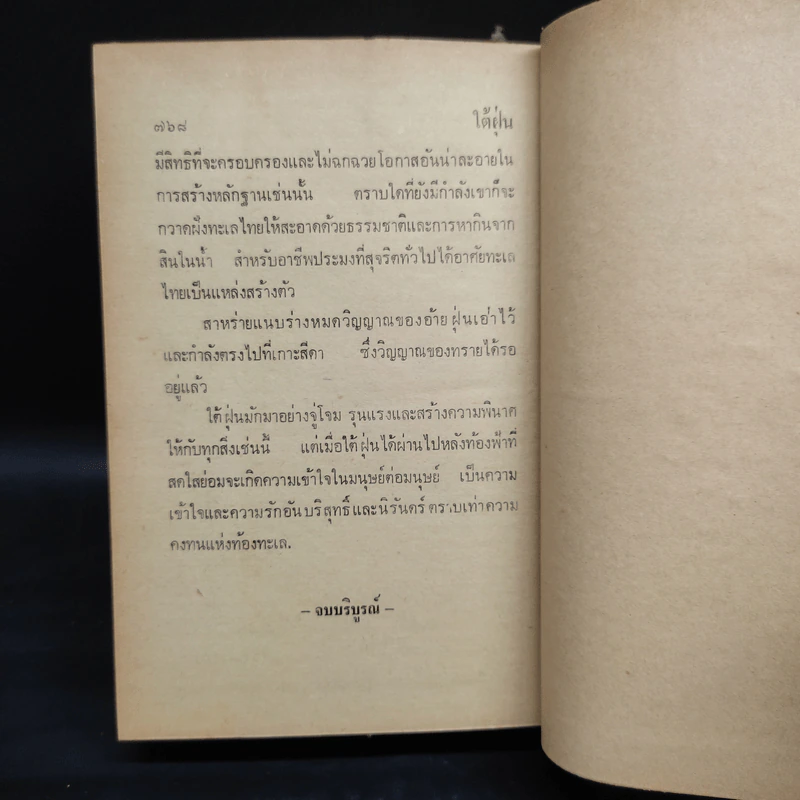 ๗๖๘ ใต้ฝุ่น
มีสิทธิที่จะครอบครองและไม่ฉกฉวยโอกาสอันน่าละอายใน
การสร้างหลักฐานเช่นนั้น ตราบใดที่ยังมีกำลังเขาก็จะ
กวาดผืนทะเลไทยให้สะอาดด้วยธรรมชาติและการหากินจาก
สินในน้ำ สำหรับอาชีพประมงที่สุจริตทั่วไปได้อาศัยทะเล
ไทยเป็นแหล่งสร้างตัว
สาหร่ายแนบร่างหมดวิญญาณของอ้ายฝุ่นเอาไว้
และกำลังตรงไปที่เกาะสีดา ซึ่งวิญญาณของทรายได้รอ
อยู่แล้ว
ใต้ฝุ่นมักมาอย่างจู่โจม รุนแรงและสร้างความพินาศ
ให้กับทุกสิ่งเช่นนี้ แต่เมื่อใต้ฝุ่นได้ผ่านไปหลังท้องฟ้าที่
สดใสย่อมจะเกิดความเข้าใจในมนุษย์ต่อมนุษย์ เป็นความ
เข้าใจและความรักอันบริสุทธิ์และนิรันดร์ ตราบเท่าความ
คงทนแห่งท้องทะเล.
– จบบริบูรณ์ –